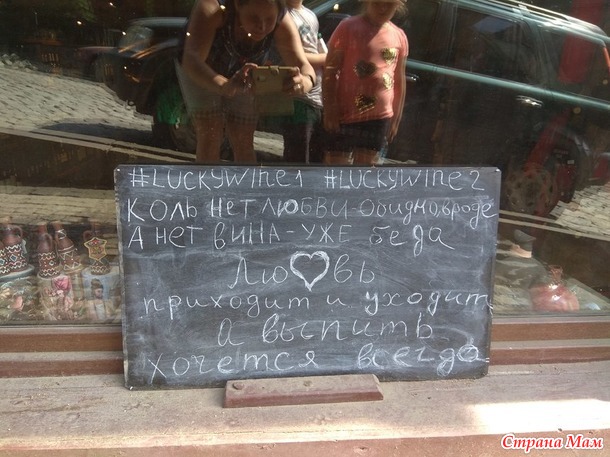 #LUCKYWINE1 #LUCKYWINE2
КОЛЬ НЕТ ЛЮБВИ - Обидно вроде
А НЕТ ВИНА - УЖЕ беда
Любовь
приходит и уходит
а выпить
хочется всегда
Страна Мам